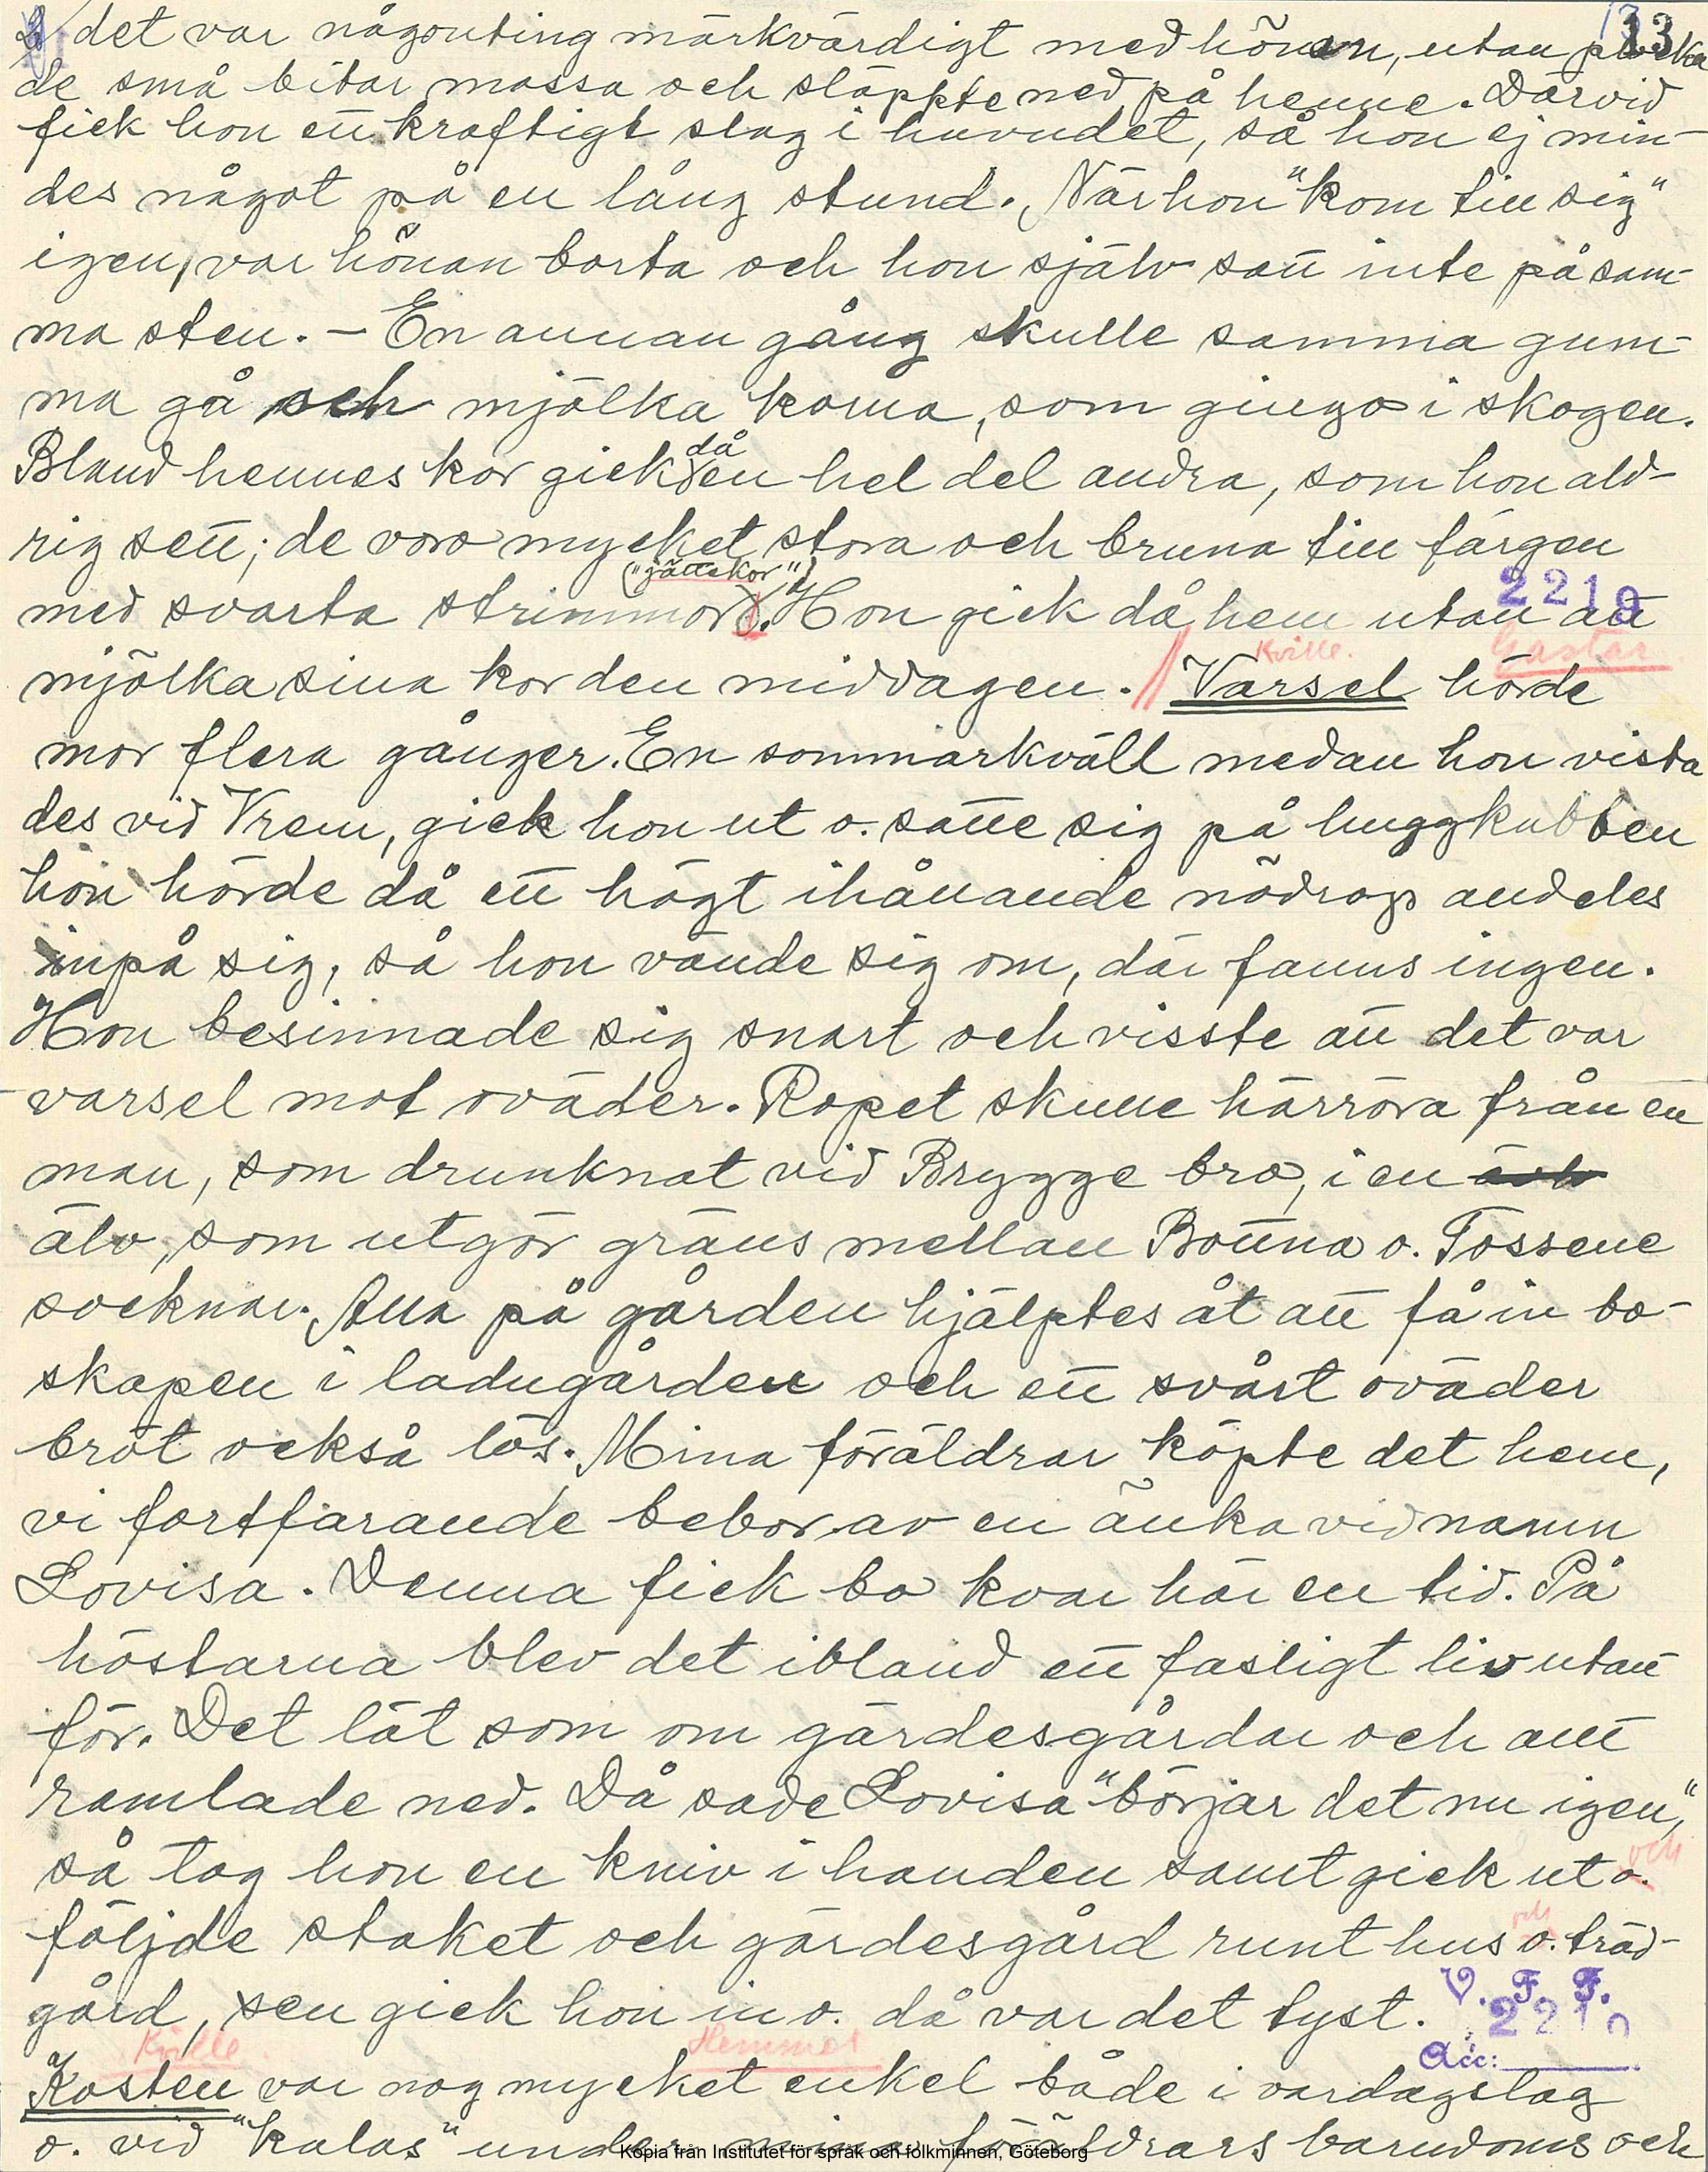 13
det var någonting märkvärdigt med hönan, utan plocka
de små bitar massa och släppte ned på henne. Därvid
fick hon ett kraftigt slag i huvudet, så hon ej min-
des något på en lång stund. När hon "kom till sig"
igen, var hönan borta och hon själv satt inte på sam-
ma sten. – En annan gång skulle samma gum-
ma gå och mjölka korna, som gingo i skogen.
då
Bland hennes kor gick en hel del andra, som hon ald-
rig sett; de voro mycket stora och bruna till färgen
("jättekor")
med svarta strimmor. Hon gick då hem utan att
2219
Kville. Gastar
mjölka sina kor den middagen. // Varsel hörde
mor flera gånger. En sommarkväll medan hon vista
des vid Vrem, gick hon ut o. satte sig på huggkubben
hon hörde då ett högt ihållande nödrop andeles
inpå sig, så hon vände sig om, där fanns ingen.
Hon besinnade sig snart och visste att det var
varsel mot oväder. Ropet skulle härröra från en
man, som drunknat vid Brygge bro, i en
älv, som utgör gräns mellan Bottna o. Tossene
socknar. Alla på gården hjälptes åt att få in bo-
skapen i ladugården och ett svårt oväder
bröt också lös. Mina föräldrar köpte det hem,
vi fortfarande bebor av en änka vid namn
Lovisa. Denna fick bo kvar här en tid. På
höstarna blev det ibland ett fasligt liv utan
för. Det lät som om gärdesgårdar och allt
ramlade ned. Då sade Lovisa "börjar det nu igen",
så tog hon en kniv i handen samt gick ut o.
och
följde staket och gärdesgård runt hus o. träd-
och
gård, sen gick hon in o. då var det tyst.
V. F. F.
2210
Acc:
Kville. Hemmet
Kosten var nog mycket enkel både i vardagslag
o. vid "kalas" under mina föräldrars barndoms och
Kopia från Institutet för språk och folkminnen, Göteborg